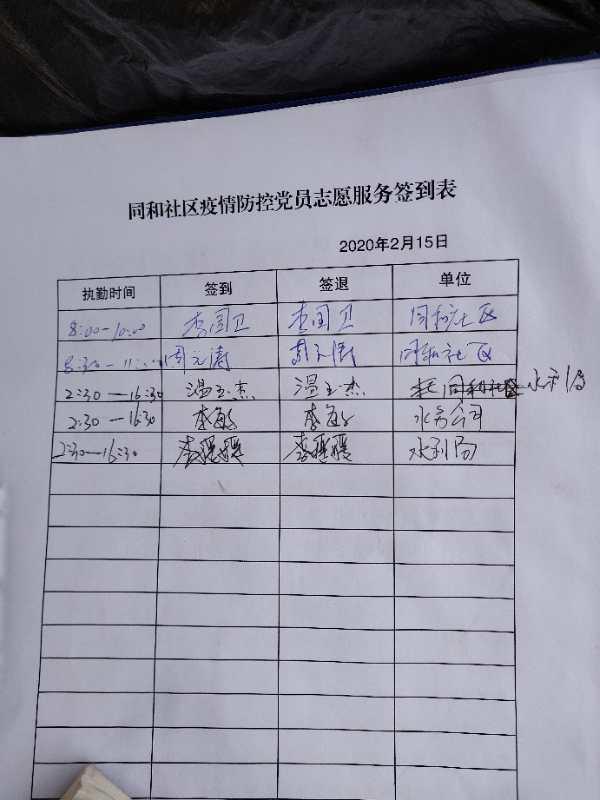 同和社区疫情防控党员志愿服务签到表
2020年2月15日
执勤时间 签到 签退 单位
8:00-10:00 李国卫 李国卫 同和社区
8:30-11:00 周元涛 周元涛 同和社区
2:30—16:30 温玉杰 温玉杰 同和社区 水利局
2:30—16:30 李敏 李敏 水务公司
2:30—16:30 李媛媛 李媛媛 水利局